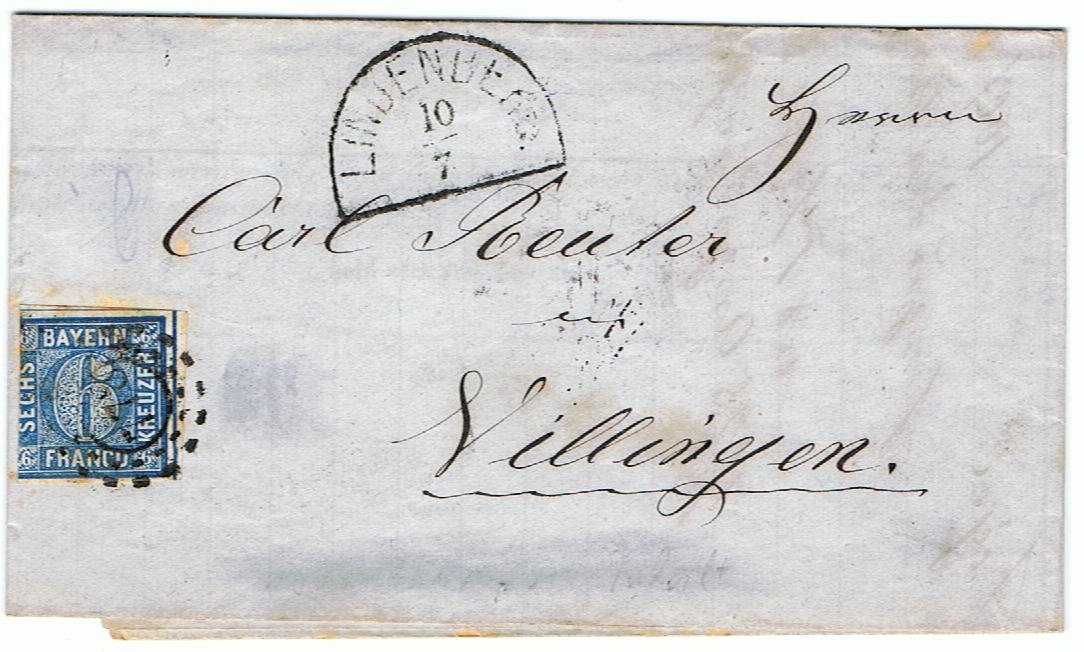 LINDENBERG.
10
7
Herrn
Carl Reuter
in
Villingen.
6 BAYERN 6
SECHS 6 KREUZER
6 FRANCO 6